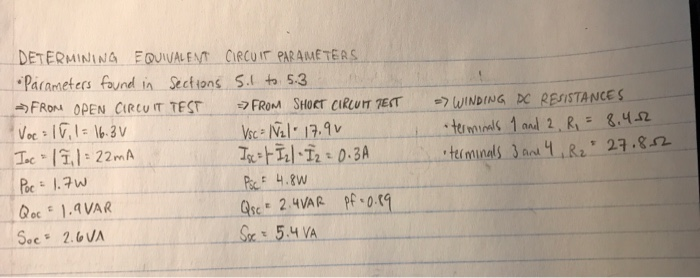 DETERMINING EQUIVALENT CIRCUIT PARAMETERS
• Parameters found in Sections 5.1 to 5.3
⇒ FROM OPEN CIRCUIT TEST
Voc = |Ṽ₁| = 16.3V
Ioc = |Ĩ₁| = 22mA
Poc = 1.7W
Qoc = 1.9VAR
Soc = 2.6VA
⇒ FROM SHORT CIRCUIT TEST
Vsc = |Ṽ₂| = 17.9V
Isc = |-Ĩ₂| = Ĩ₂ = 0.3A
Psc = 4.8W
Qsc = 2.4VAR pf = 0.89
Ssc = 5.4VA
⇒ WINDING DC RESISTANCES
• terminals 1 and 2, R₁ = 8.4Ω
• terminals 3 and 4, R₂ = 27.8Ω